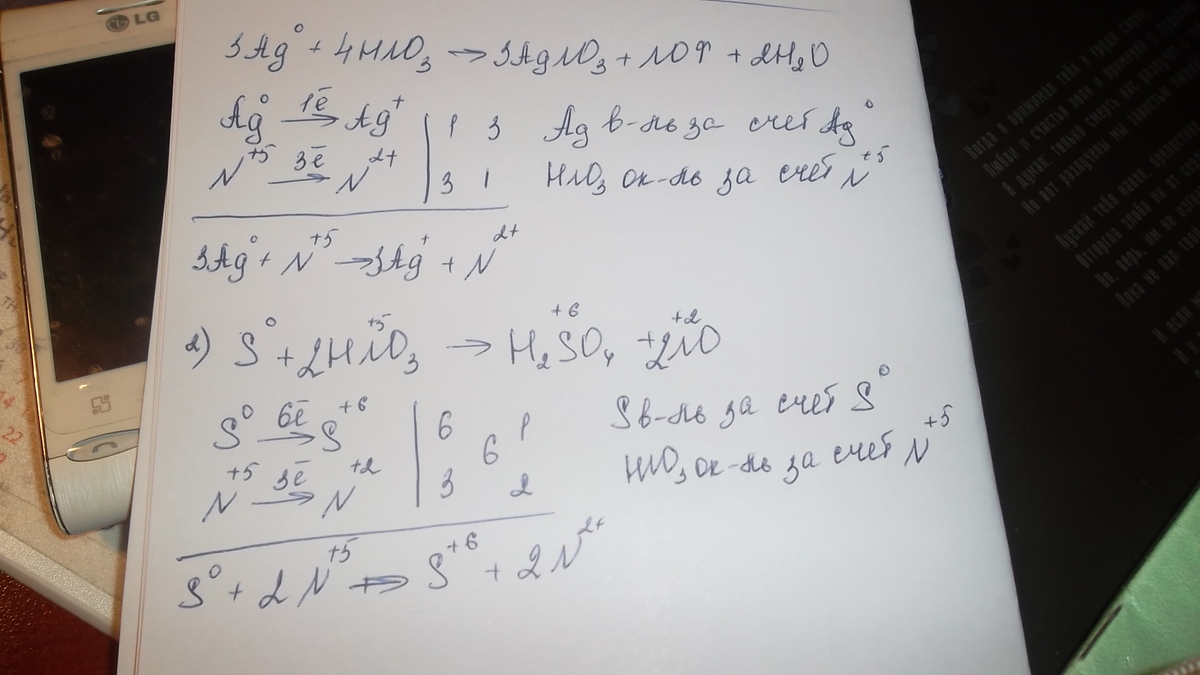 LG
3Ag⁰ + 4HNO₃ → 3AgNO₃ + NO↑ + 2H₂O
Ag⁰ 1ē→ Ag⁺ | 1 3 Ag в-ль за счет Ag⁰
N⁺⁵ 3ē→ N²⁺ | 3 1 HNO₃ ок-ль за счёт N⁺⁵
3Ag⁰ + N⁺⁵ → 3Ag⁺ + N²⁺
2) S⁰ + 2HN⁺⁵O₃ → H₂S⁺⁶O₄ + 2N⁺²O
S⁰ 6ē→ S⁺⁶ | 6 6 1 S в-ль за счет S⁰
N⁺⁵ 3ē→ N⁺² | 3 2 HNO₃ ок-ль за счет N⁺⁵
S⁰ + 2N⁺⁵ → S⁺⁶ + 2N²⁺